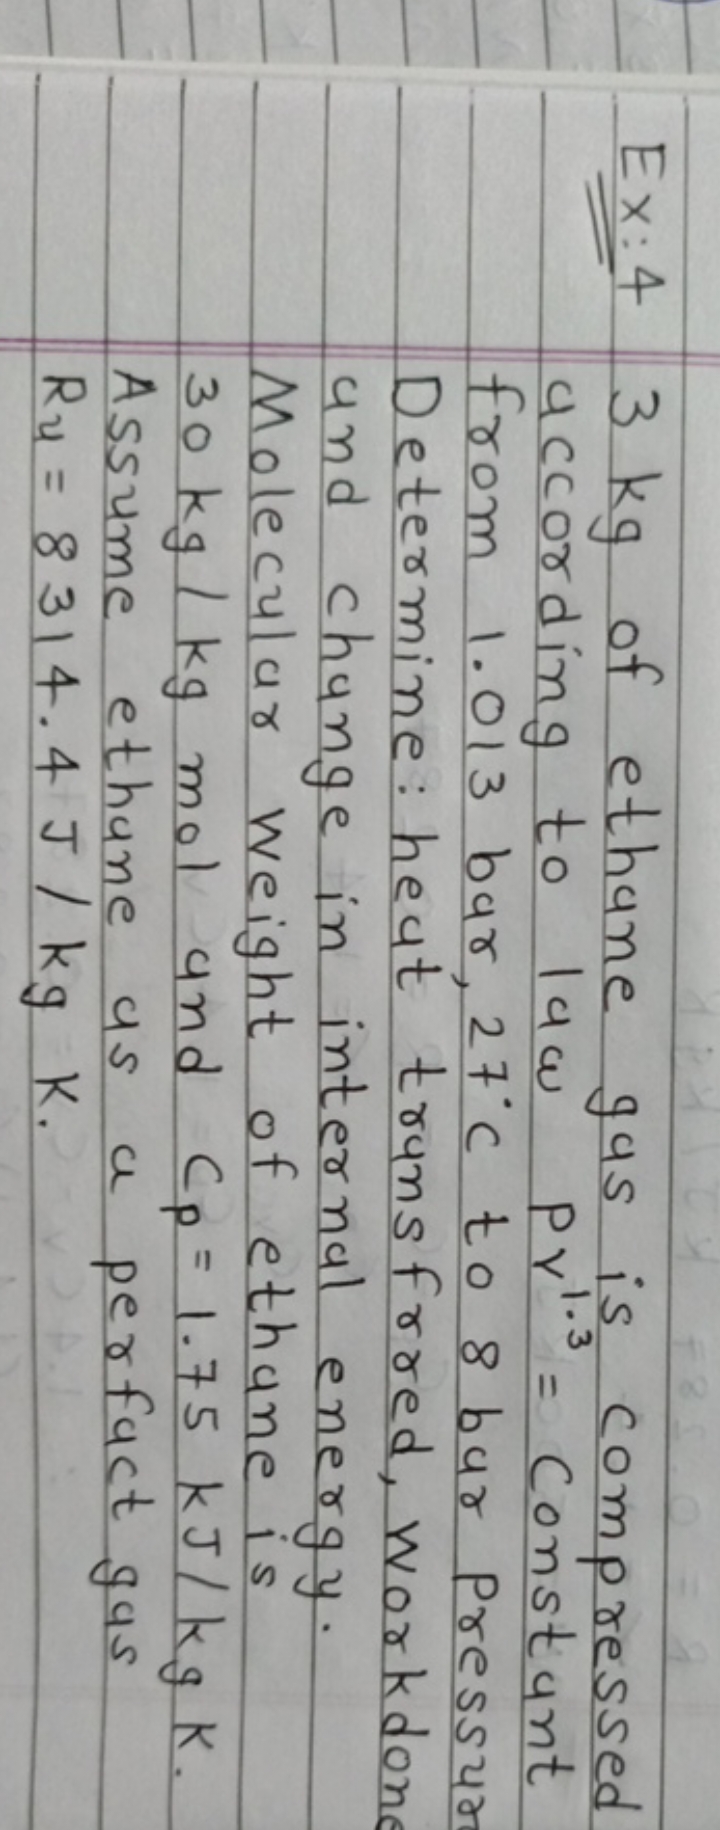 Ex:4 3 kg of ethane gas is compressed
according to law pv^1.3 = Constant
from 1.013 bar, 27°C to 8 bar Pressur
Determine: heat transfrred, workdone
and change in internal energy.
Molecular weight of ethane is
30 kg / kg mol and Cp = 1.75 kJ/kg K.
Assume ethane as a perfact gas
Ru = 8314.4 J / kg K.